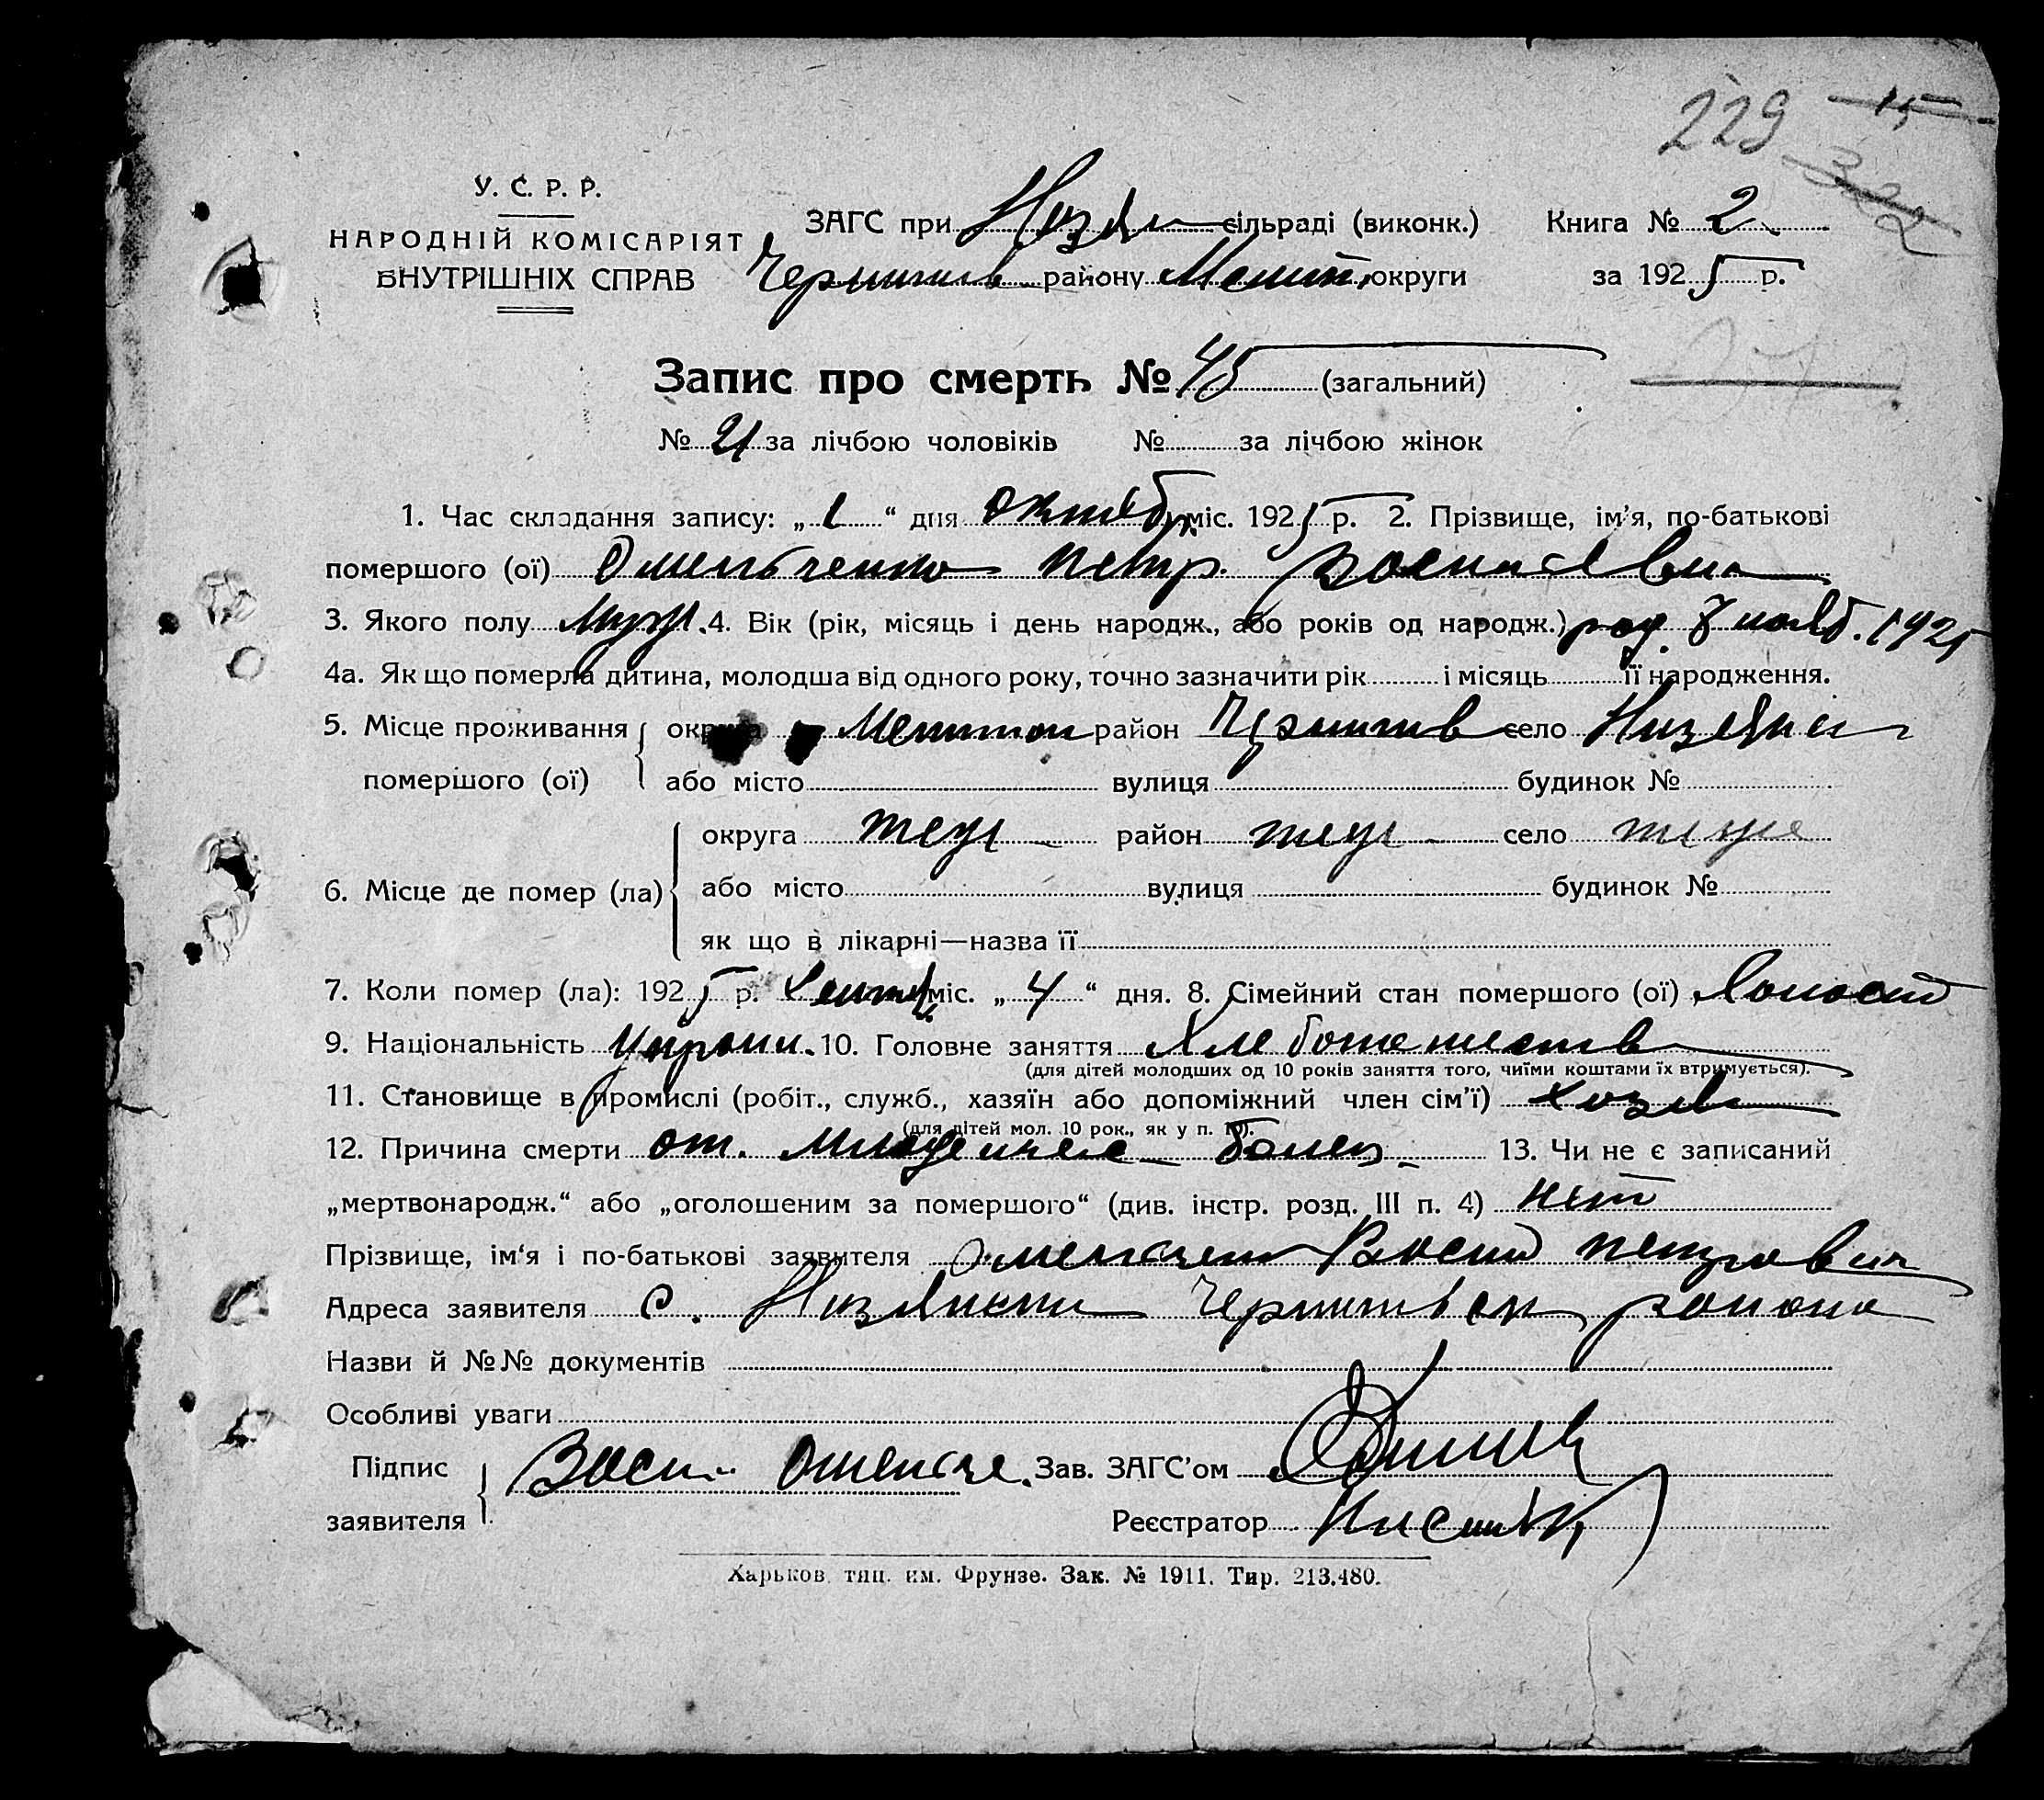 229 15
322
У. С. Р. Р.
НАРОДНІЙ КОМІСАРІЯТ
ВНУТРІШНІХ СПРАВ
ЗАГС при сільраді (виконк.) Книга № 2
району Мелит. округи за 1925 р.
Запис про смерть № 45 (загальний)
№ 21 за лічбою чоловіків № за лічбою жінок
1. Час складання запису: „1“ дня октябр. міс. 1925 р. 2. Прізвище, ім’я, по-батькові
помершого (ої) Омельченко Петр
3. Якого полу Муж. 4. Вік (рік, місяць і день народж., або років од народж.) род. 7 нояб. 1925
4а. Як що померла дитина, молодша від одного року, точно зазначити рік і місяць її народження.
5. Місце проживання округа Мелитоп район село
помершого (ої) або місто вулиця будинок №
округа теж район теж село теже
6. Місце де помер (ла) або місто вулиця будинок №
як що в лікарні—назва її
7. Коли помер (ла): 1925 р. Сентяб. міс. „4“ дня. 8. Сімейний стан помершого (ої) Холост
9. Національність Украин. 10. Головне заняття Хлебопашеств
(для дітей молодших од 10 років заняття того, чиїми коштами їх втримується).
11. Становище в промислі (робіт., служб., хазяїн або допоміжний член сім’ї) хозяи
(для дітей мол. 10 рок., як у п. 10).
12. Причина смерти от. младенческ болез. 13. Чи не є записаний
„мертвонародж.“ або „оголошеним за помершого“ (див. інстр. розд. III п. 4) нет
Прізвище, ім‘я і по-батькові заявителя Омельчен Васил Петрович
Адреса заявителя с. района
Назви й №№ документів
Особливі уваги
Підпис Васил Омельче. Зав. ЗАГС’ом
заявителя Реєстратор
Харьков. тип. им. Фрунзе. Зак. № 1911. Тир. 213.480.